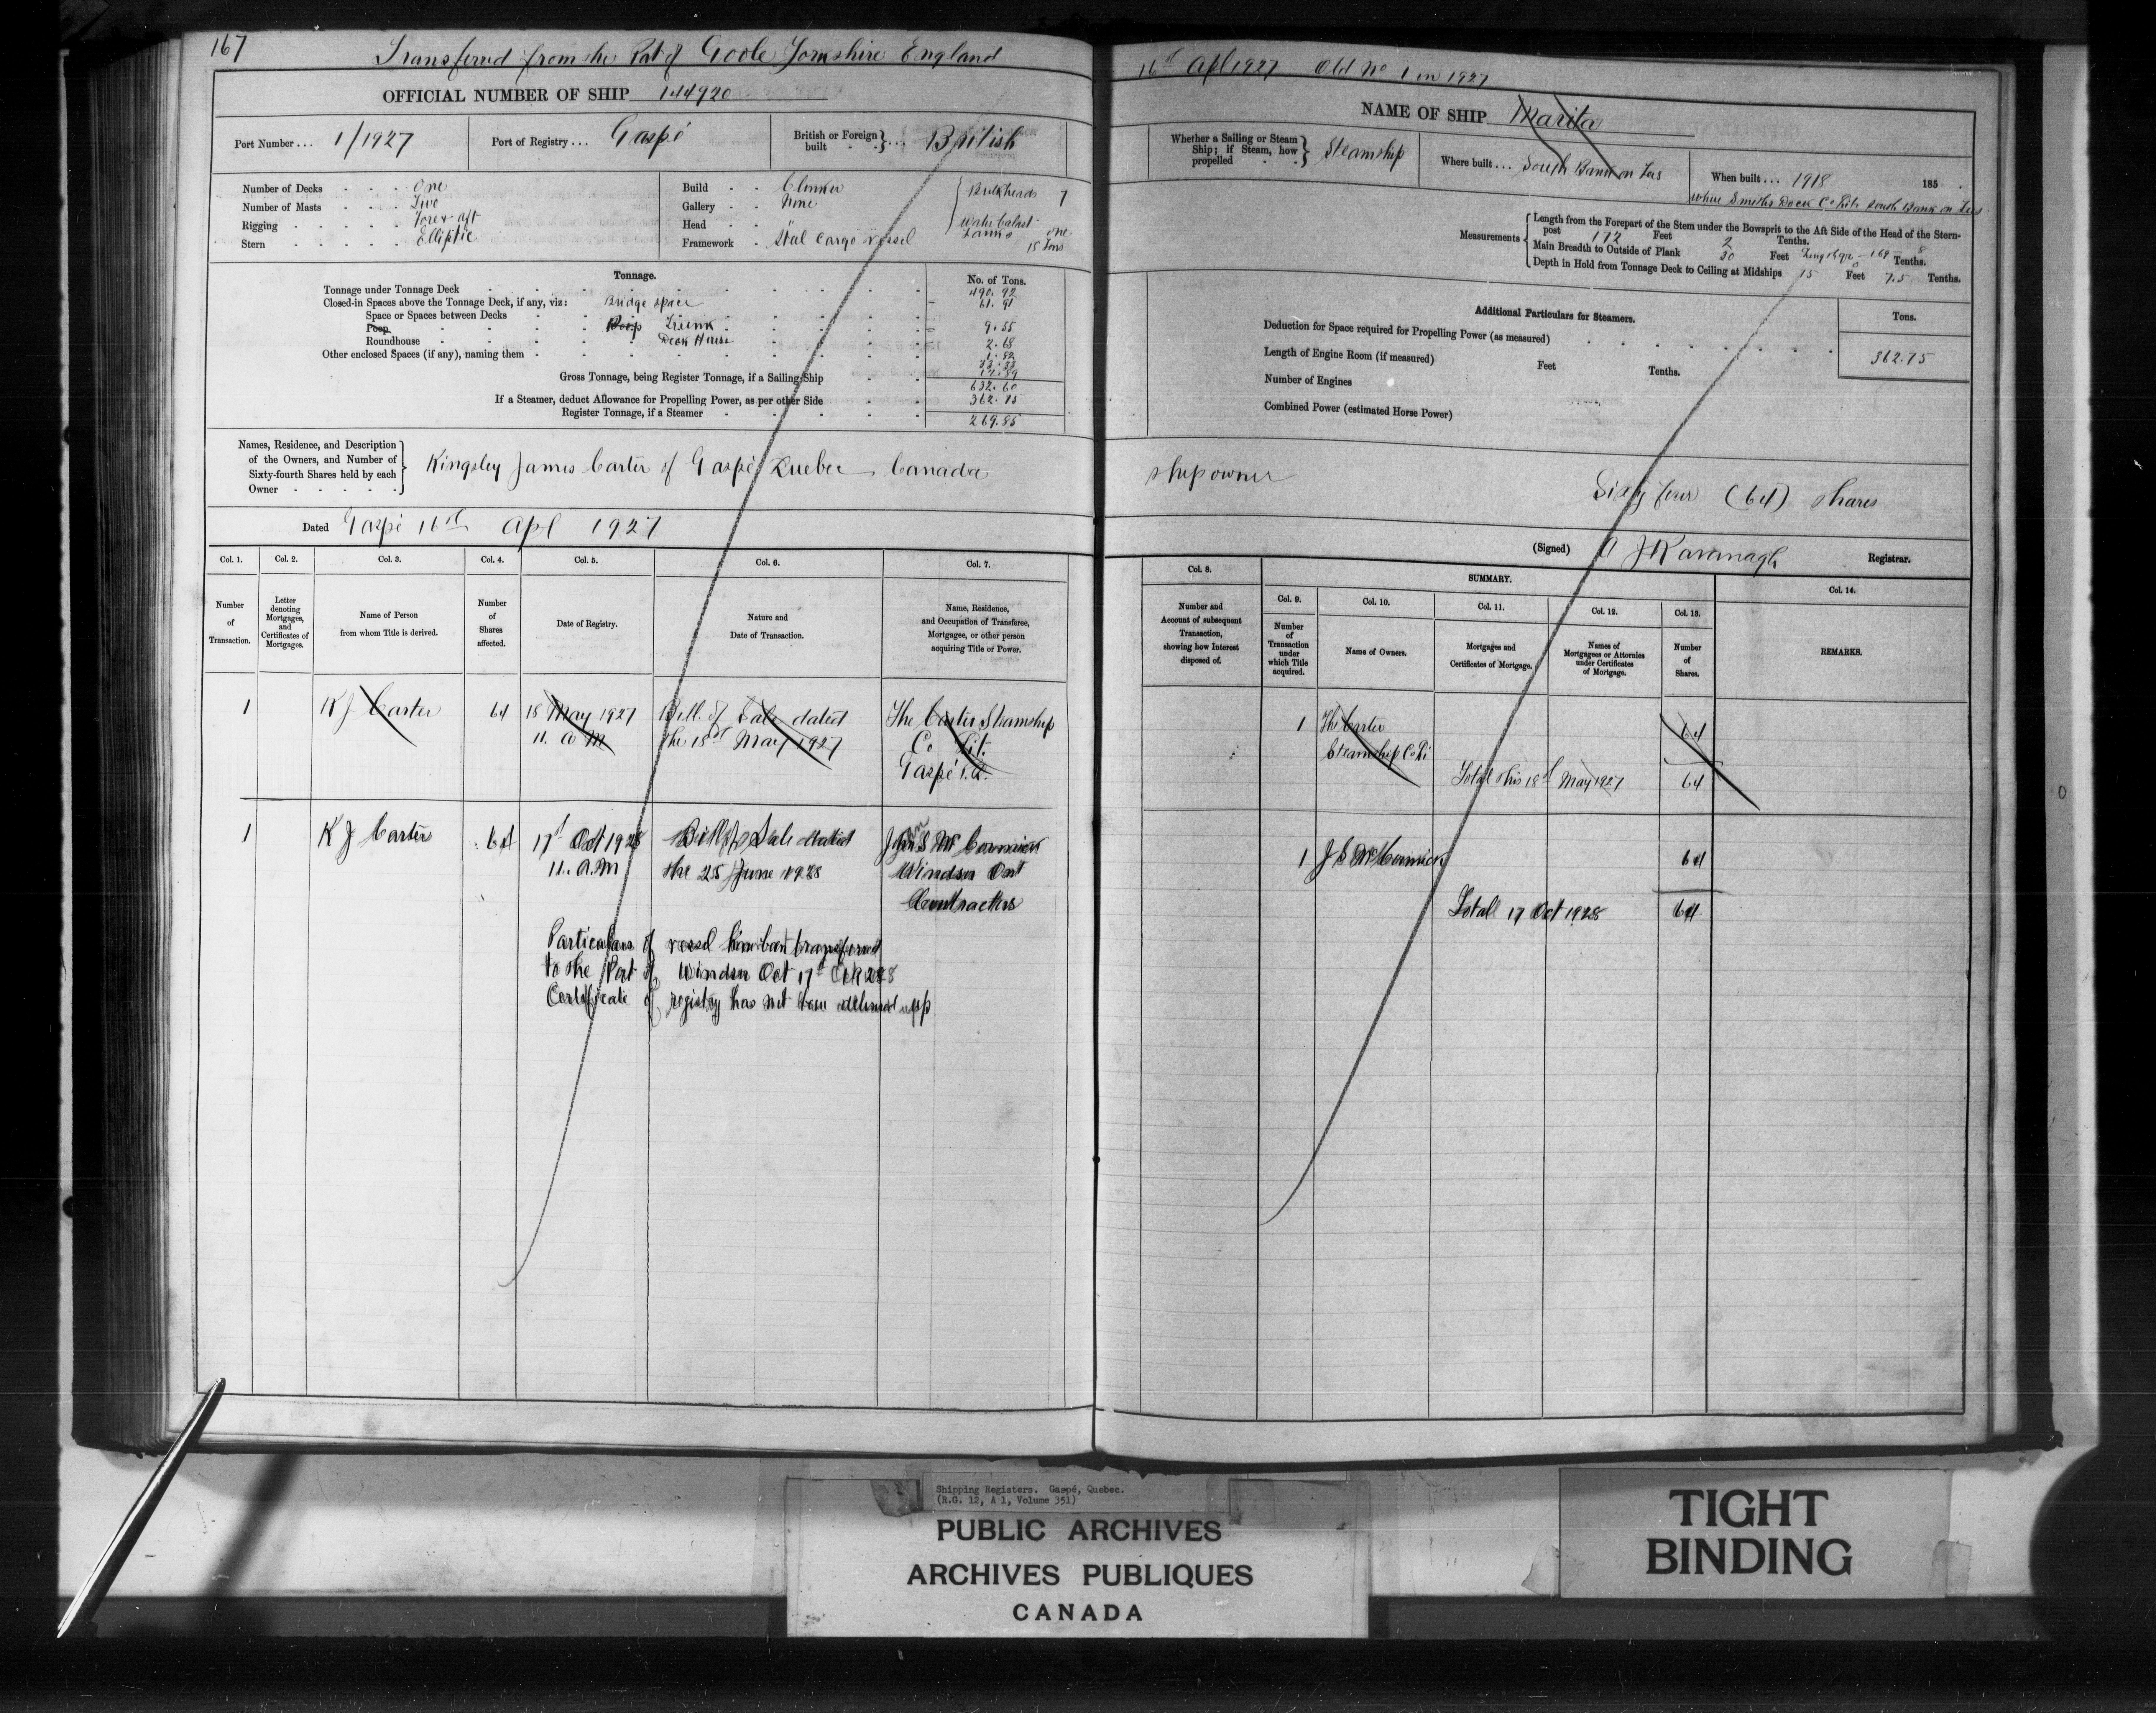 167
Transferred from the Port of Goole Yorkshire England
16th Apl 1927 Old No 1 in 1927
OFFICIAL NUMBER OF SHIP 144920
NAME OF SHIP Marita
Port Number... 1/1927
Port of Registry... Gaspé
British or Foreign built British
Whether a Sailing or Steam Ship; if Steam, how propelled Steamship
Where built... South Bank on Tees
When built... 1918 185 .
where Smiths Dock Co Ltd South Bank on Tees
Number of Decks One
Number of Masts Two
Rigging Fore & aft
Stern Elliptic
Build Clinker
Gallery None
Head
Framework Steel Cargo vessel
Bulkheads 7
water balast tanks one
15 Tons
Measurements
Length from the Forepart of the Stem under the Bowsprit to the Aft Side of the Head of the Stern-
post 172 Feet 2 Tenths.
Main Breadth to Outside of Plank 30 Feet Tenths.
Depth in Hold from Tonnage Deck to Ceiling at Midships 15 Feet 7.5 Tenths.
Tonnage.
No. of Tons.
Tonnage under Tonnage Deck 490.92
Closed-in Spaces above the Tonnage Deck, if any, viz: Bridge space 61.91
Space or Spaces between Decks
Poop Poop Trunk 9.55
Roundhouse Deck House 2.68
Other enclosed Spaces (if any), naming them 1.82
33.33
Gross Tonnage, being Register Tonnage, if a Sailing Ship 632.60
If a Steamer, deduct Allowance for Propelling Power, as per other Side 362.75
Register Tonnage, if a Steamer 269.85
Additional Particulars for Steamers.
Tons.
Deduction for Space required for Propelling Power (as measured)
362.75
Length of Engine Room (if measured) Feet Tenths.
Number of Engines
Combined Power (estimated Horse Power)
Names, Residence, and Description
of the Owners, and Number of
Sixty-fourth Shares held by each
Owner
Kingsley James Carter of Gaspé Quebec Canada
ship owner
Sixty four (64) shares
Dated Gaspé 16th Apl 1927
(Signed) A J Kavanagh Registrar.
Col. 1.
Col. 2.
Col. 3.
Col. 4.
Col. 5.
Col. 6.
Col. 7.
Col. 8.
SUMMARY.
Col. 9.
Col. 10.
Col. 11.
Col. 12.
Col. 13.
Col. 14.
Number
of
Transaction.
Letter
denoting
Mortgages,
and
Certificates of
Mortgages.
Name of Person
from whom Title is derived.
Number
of
Shares
affected.
Date of Registry.
Nature and
Date of Transaction.
Name, Residence,
and Occupation of Transferee,
Mortgagee, or other person
acquiring Title or Power.
Number and
Account of subsequent
Transaction,
showing how Interest
disposed of.
Number
of
Transaction
under
which Title
acquired.
Name of Owners.
Mortgages and
Certificates of Mortgage.
Names of
Mortgagees or Attornies
under Certificates
of Mortgage.
Number
of
Shares.
REMARKS.
1 K J Carter 64 18 May 1927 Bill of Sale dated The Carter Steamship
11. a M the 18th May 1927 Co Lit.
Gaspé P.Q.
1 The Carter 64
Steamship Co Li
Total this 18th May 1927 64
1 K J Carter 64 17th Oct 1928 Bill of Sale dated John S McCormick
11. a.m the 25 June 1928 Windsor Ont
Contractor
1 J S McCormick 64
Total 17 Oct 1928 64
Particulars of vessel been transferred
to the Port of Windsor Oct 17th 1928
Certificate of registry has not been delivered up
Shipping Registers. Gaspé, Quebec.
(R.G. 12, A 1, Volume 351)
PUBLIC ARCHIVES
ARCHIVES PUBLIQUES
CANADA
TIGHT
BINDING